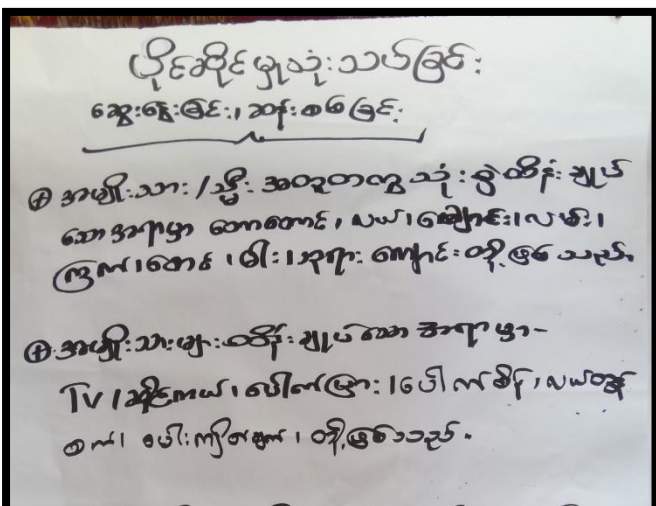 ပိုင်ဆိုင်မှုသုံးသပ်ခြင်း
ဆွေးနွေးခြင်း၊ ဆန်းစစ်ခြင်း
⊕ အမျိုးသား / သ္မီး အတူတကွ သုံးစွဲထိန်းချုပ်
သောအရာမှာ တောတောင်၊ လယ်၊ ချောင်း၊ လမ်း၊
ကြက်၊ ၊ ဝါး၊ ဘုရား ကျောင်း တို့ဖြစ်သည်။
⊕ အမျိုးသားများထိန်းချုပ်သော အရာမှာ -
TV ၊ ဆိုင်ကယ်၊ ပေါက်ပြား ၊ ၊ လယ်ထွန်
စက်၊ တို့ဖြစ်သည်။